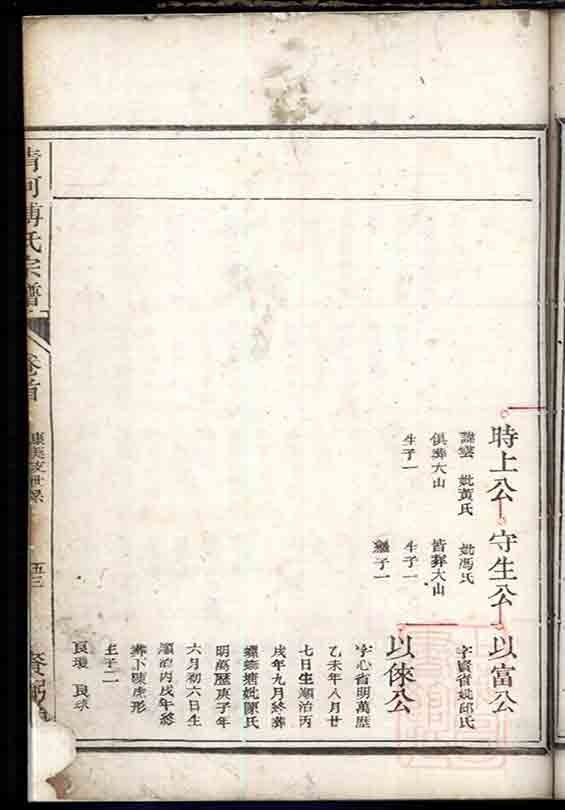 時上公
諱雲　妣黃氏
俱葬大山
生子一
守生公
妣馮氏
皆葬大山
生子一
繼子一
以富公
字賢省妣邱氏
以倈公
字心省明萬歷
乙未年八月廿
七日生順治丙
戌年九月終葬
螺螄塘妣陳氏
明萬歷庚子年
六月初六日生
順治丙戌年終
葬下陳虎形
生子二
良璦　良球
清河傅氏宗譜
卷首
支世系
五三